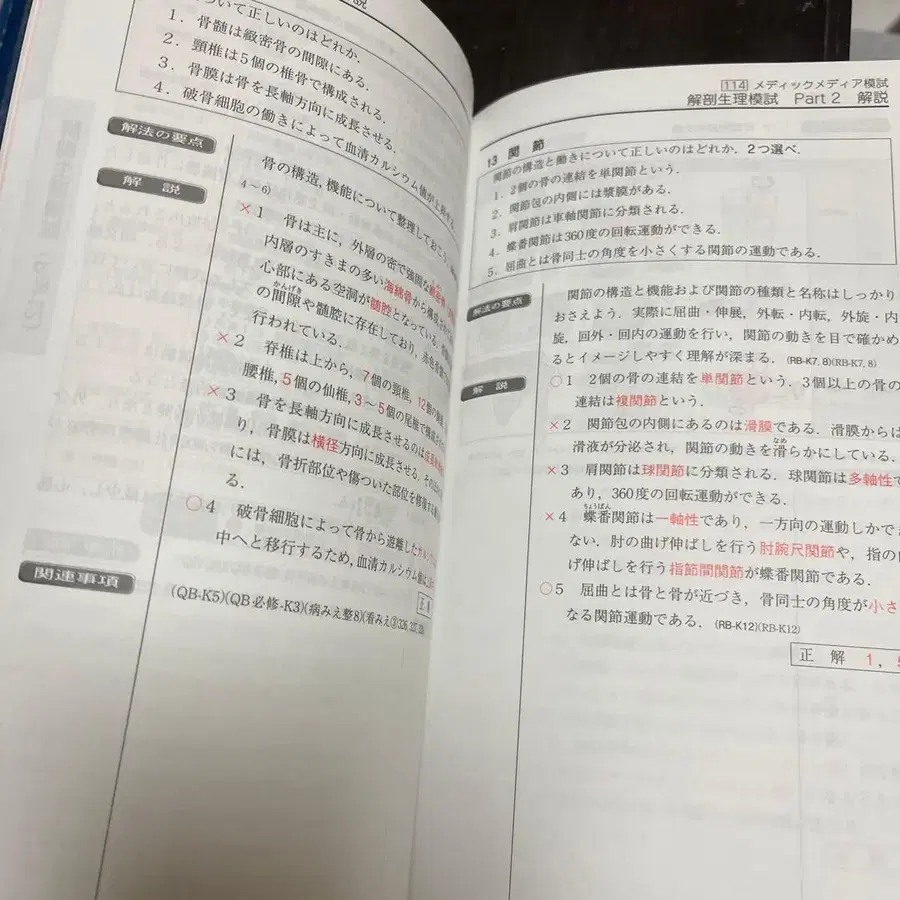 説
ついて正しいのはどれか.
1. 骨髄は緻密骨の間隙にある.
2. 頸椎は5個の椎骨で構成される.
3. 骨膜は骨を長軸方向に成長させる.
4. 破骨細胞の働きによって血清カルシウム値が上昇する.
解法の要点
骨の構造, 機能について整理しておこう.
4~6)
解説
×1 骨は主に, 外層の密で強固な
内層のすきまの多い海綿骨から構成され
心部にある空洞が髄腔となっている.
かんげき
の間隙や髄腔に存在しており, 赤色骨髄
行われている.
×2 脊椎は上から, 7個の頸椎, 12個の
腰椎, 5個の仙椎, 3~5個の尾椎で構成
×3 骨を長軸方向に成長させるのは
り, 骨膜は横径方向に成長させる.
には, 骨折部位や傷ついた部位を修復する
る.
○4 破骨細胞によって骨から遊離したカルシウム
中へと移行するため, 血清カルシウム値は
関連事項
(QB-K5)(QB必修-K3)(病みえ整8)(看みえ③326, 327, 329)
114 メディックメディア模試
解剖生理模試 Part 2 解説
13 関節
関節の構造と働きについて正しいのはどれか. 2つ選べ.
1. 2個の骨の連結を単関節という.
2. 関節包の内側には漿膜がある.
3. 肩関節は車軸関節に分類される.
4. 蝶番関節は360度の回転運動ができる.
5. 屈曲とは骨同士の角度を小さくする関節の運動である.
解法の要点
関節の構造と機能および関節の種類と名称はしっかり
おさえよう. 実際に屈曲・伸展, 外転・内転, 外旋・内
旋, 回外・回内の運動を行い, 関節の動きを目で確かめ
るとイメージしやすく理解が深まる. (RB-K7, 8)(RB-K7, 8)
解説
○1 2個の骨の連結を単関節という. 3個以上の骨の
連結は複関節という.
×2 関節包の内側にあるのは滑膜である. 滑膜からは
なめ
滑液が分泌され, 関節の動きを滑らかにしている.
×3 肩関節は球関節に分類される. 球関節は多軸性で
あり, 360度の回転運動ができる.
ちょうばん
×4 蝶番関節は一軸性であり, 一方向の運動しかでき
ない. 肘の曲げ伸ばしを行う肘腕尺関節や, 指の
げ伸ばしを行う指節間関節が蝶番関節である.
○5 屈曲とは骨と骨が近づき, 骨同士の角度が小さ
なる関節運動である. (RB-K12)(RB-K12)
正解 1, 5